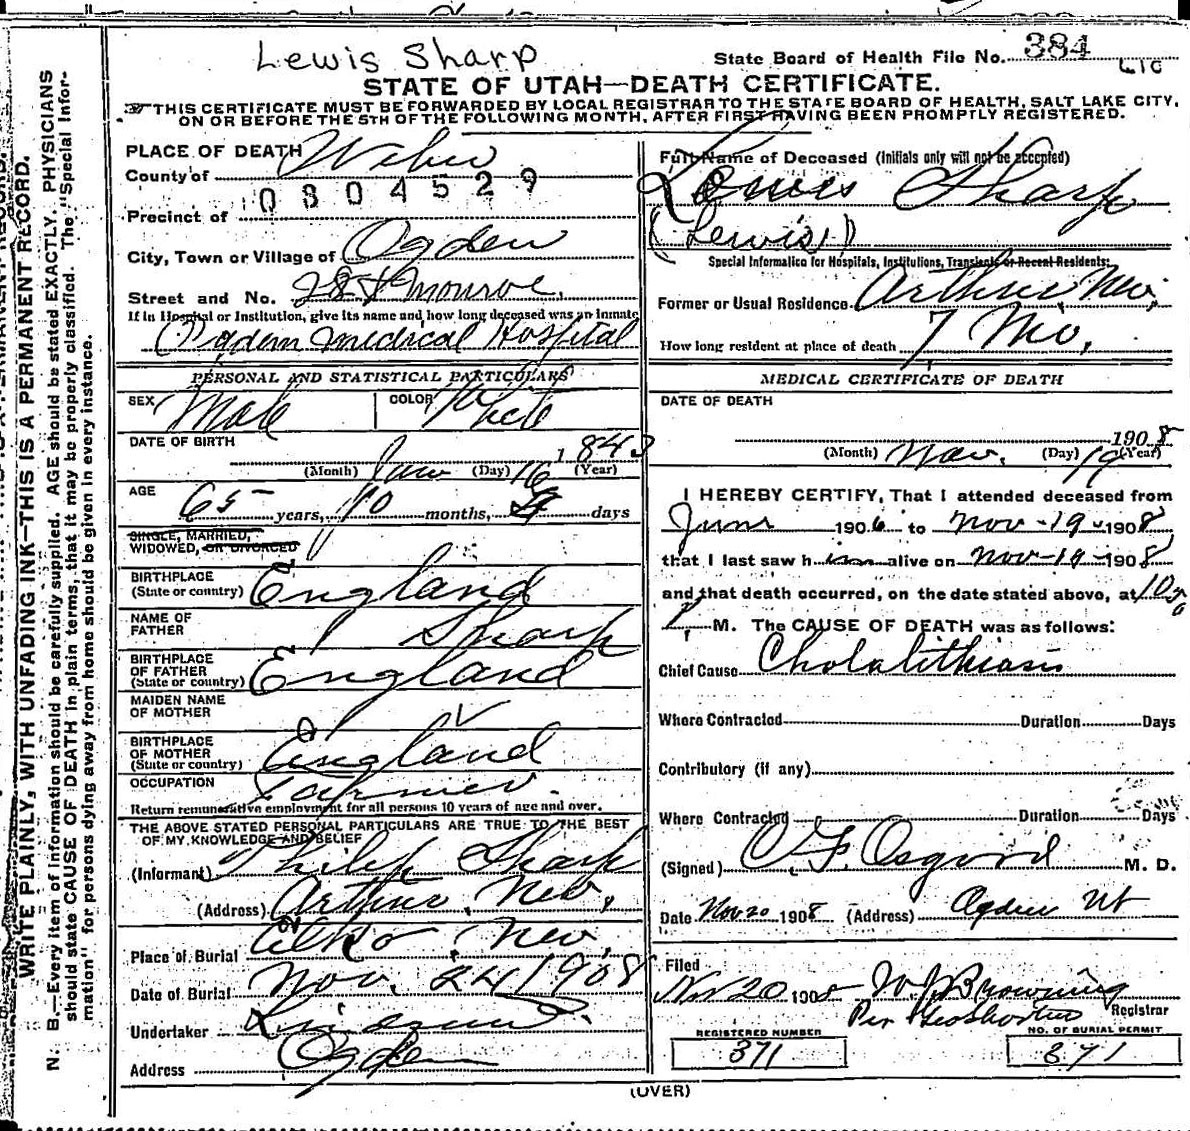 Lewis Sharp
State Board of Health File No. 384
STATE OF UTAH—DEATH CERTIFICATE.
THIS CERTIFICATE MUST BE FORWARDED BY LOCAL REGISTRAR TO THE STATE BOARD OF HEALTH, SALT LAKE CITY,
ON OR BEFORE THE 5TH OF THE FOLLOWING MONTH, AFTER FIRST HAVING BEEN PROMPTLY REGISTERED.
WRITE PLAINLY, WITH UNFADING INK—THIS IS A PERMANENT RECORD.
N. B.—Every item of information should be carefully supplied. AGE should be stated EXACTLY. PHYSICIANS
should state CAUSE OF DEATH in plain terms, that it may be properly classified. The "Special Infor-
mation" for persons dying away from home should be given in every instance.
PLACE OF DEATH
County of Weber
0804529
Precinct of
City, Town or Village of Ogden
Street and No. 28 & Monroe.
If in Hospital or Institution, give its name and how long deceased was an inmate
Ogden Medical Hospital
PERSONAL AND STATISTICAL PARTICULARS
SEX Male COLOR White
DATE OF BIRTH
1843
(Month) Jan (Day) 16 (Year)
AGE
65 years, 10 months, days
SINGLE, MARRIED,
WIDOWED, OR DIVORCED
BIRTHPLACE
(State or country) England
NAME OF
FATHER Sharp
BIRTHPLACE
OF FATHER
(State or country) England
MAIDEN NAME
OF MOTHER
BIRTHPLACE
OF MOTHER
(State or country) England
OCCUPATION Farmer.
Return remunerative employment for all persons 10 years of age and over.
THE ABOVE STATED PERSONAL PARTICULARS ARE TRUE TO THE BEST
OF MY KNOWLEDGE AND BELIEF
(Informant) Philip Sharp
(Address) Arthur, Nev,
Place of Burial Elko, Nev.
Date of Burial Nov. 24 1908
Undertaker
Address Ogden
Full Name of Deceased (Initials only will not be accepted)
Louis Sharp
(Lewis)
Special Information for Hospitals, Institutions, Transients or Recent Residents:
Former or Usual Residence Arthur, Nev,
How long resident at place of death 7 Mo,
MEDICAL CERTIFICATE OF DEATH
DATE OF DEATH
1908
(Month) Nov. (Day) 19 (Year)
I HEREBY CERTIFY, That I attended deceased from
June 1906 to Nov-19-1908
that I last saw him alive on Nov-19-1908,
and that death occurred, on the date stated above, at
P, M. The CAUSE OF DEATH was as follows:
Chief Cause Cholalithiasis
Where Contracted Duration Days
Contributory (if any)
Where Contracted Duration Days
(Signed) C F. Osgood M. D.
Date Nov 20 1908 (Address) Ogden Ut
Filed
Nov 20 1908 W J Browning
Registrar
Per
REGISTERED NUMBER
371
NO. OF BURIAL PERMIT
371
(OVER)